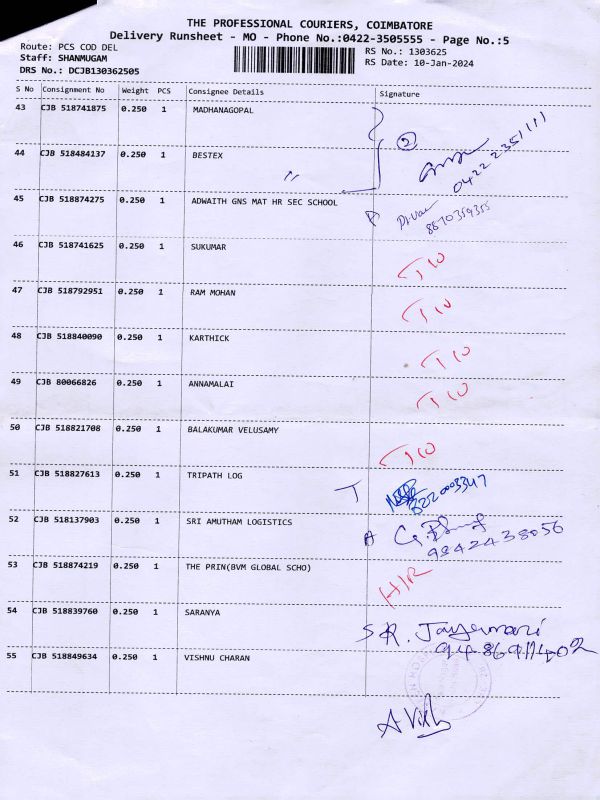 THE PROFESSIONAL COURIERS, COIMBATORE
Delivery Runsheet - MO - Phone No.:0422-3505555 - Page No.:5
Route: PCS COD DEL
RS No.: 1303625
Staff: SHANMUGAM
RS Date: 10-Jan-2024
DRS No.: DCJB130362505
S No Consignment No Weight PCS Consignee Details Signature
43 CJB 518741875 0.250 1 MADHANAGOPAL
2
44 CJB 518484137 0.250 1 BESTEX
0422 2351111
45 CJB 518874275 0.250 1 ADWAITH GNS MAT HR SEC SCHOOL
46 CJB 518741625 0.250 1 SUKUMAR
47 CJB 518792951 0.250 1 RAM MOHAN
48 CJB 518840090 0.250 1 KARTHICK
49 CJB 80066826 0.250 1 ANNAMALAI
50 CJB 518821708 0.250 1 BALAKUMAR VELUSAMY
51 CJB 518827613 0.250 1 TRIPATH LOG
52 CJB 518137903 0.250 1 SRI AMUTHAM LOGISTICS
9842438056
53 CJB 518874219 0.250 1 THE PRIN(BVM GLOBAL SCHO)
54 CJB 518839760 0.250 1 SARANYA
55 CJB 518849634 0.250 1 VISHNU CHARAN